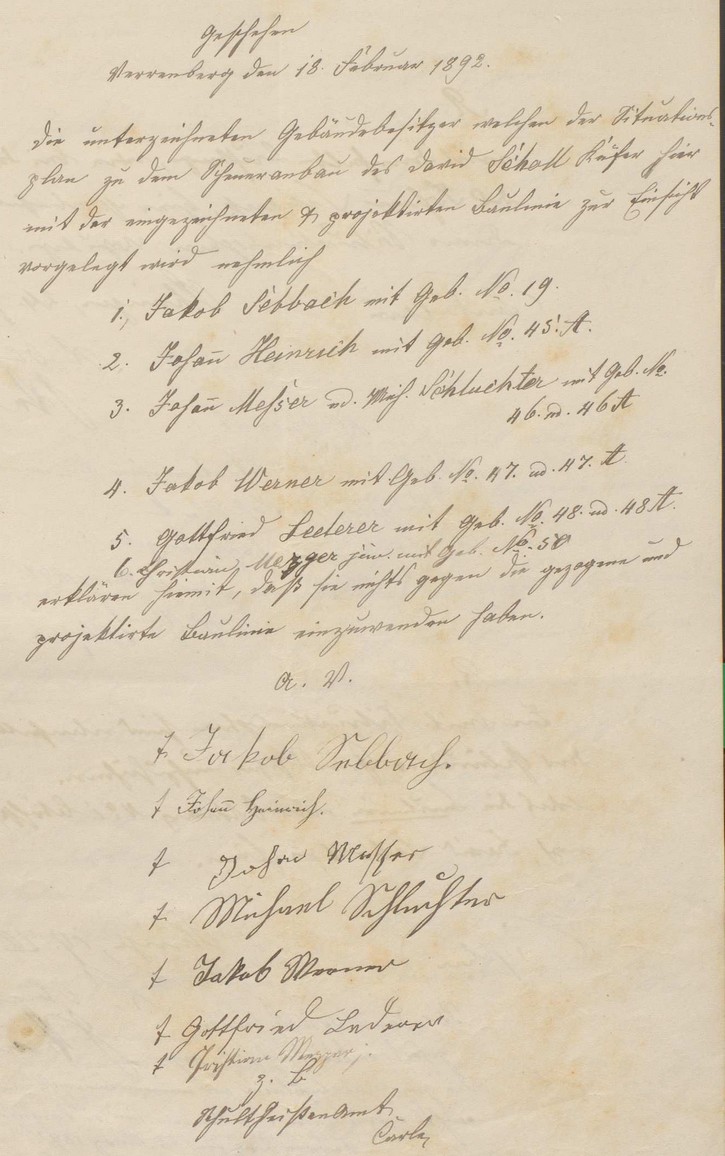 Geschehen
Verrenberg den 18. Februar 1892.
Die unterzeichneten Gebäudebesitzer welchen der Situations-
plan zu dem Scheueranbau des David Scholl Küfer hier
mit der eingezeichneten & projektirten Baulinie zur Einsicht
vorgelegt wird nehmlich
1., Jakob Sebbach mit Geb. No. 19.
2. Johañ Heinrich mit Geb. No. 45. A.
3. Johañ Messer ud. Mich. Schluchter mit Geb. No.
46. ud. 46 A
4. Jakob Werner mit Geb. No. 47. ud. 47. A
5. Gottfried Lederer mit Geb. No. 48. ud. 48 A.
6. Christian Mezger jun. mit Geb. No. 50
erklären hiemit, daß sie nichts gegen die gezogene und
projektirte Baulinie einzuwenden haben.
a. V.
† Jakob Sebbach.
† Johañ Heinrich.
† Johan Messer
† Michael Schluchter
† Jakob Werner
† Gottfried Lederer
† Christian Mezger j.
z. B
Schultheißenamt
Carle